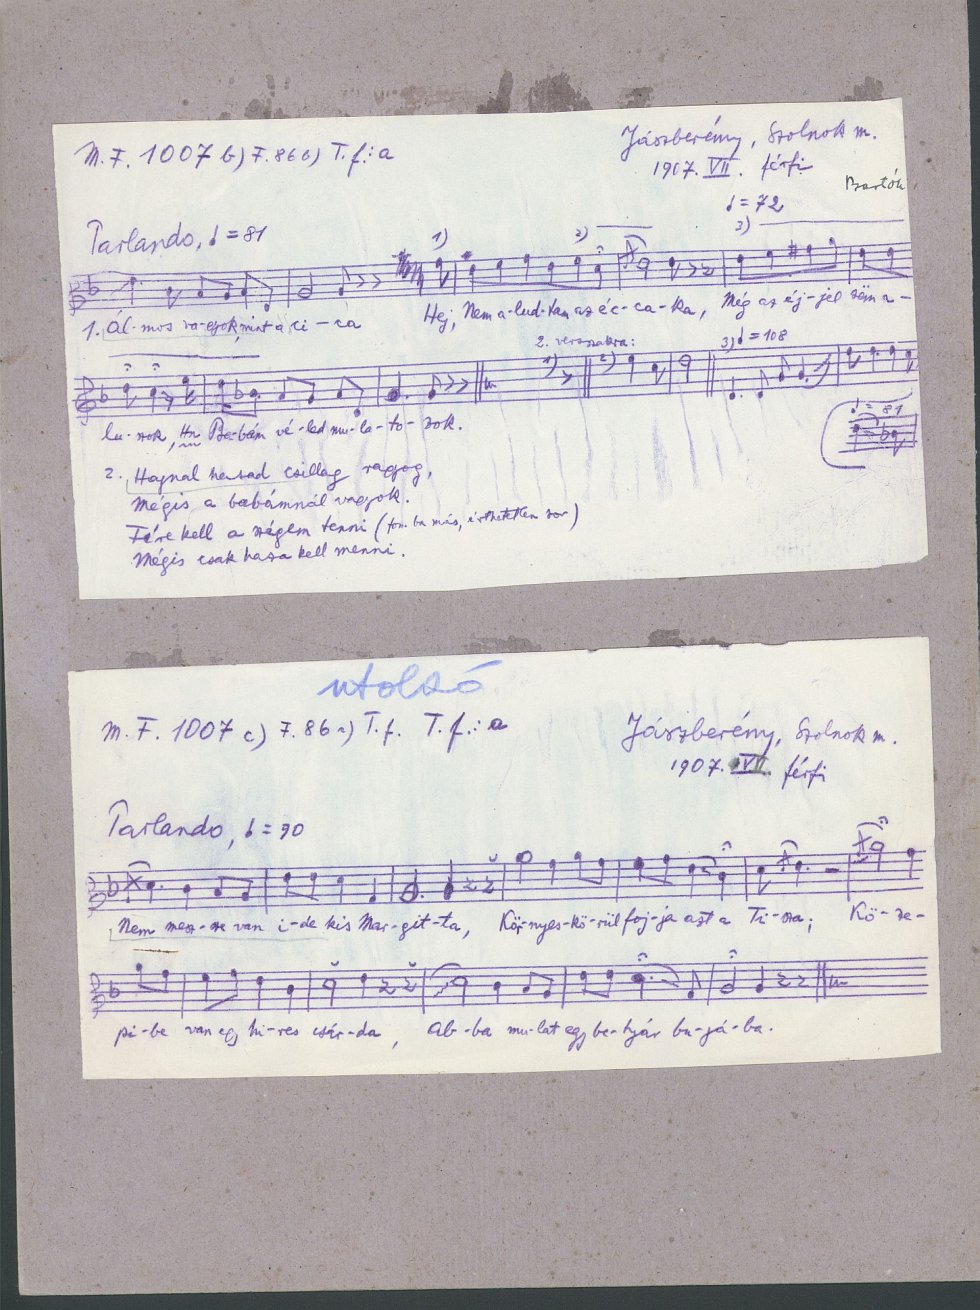 M. F. 1007 b) F. 86 b) T. f.: a
Jászberény, Szolnok m.
1907. VII. férfi
Bartók
Parlando, ♩ = 81
1)
2)
3) ♩ = 72
1. Ál-mos va-gyok, mint a ci-ca
Hej, Nem a-lud-tam az éc-ca-ka, Még az éj-jel sem a-
2. versszakra:
1)
2)
3) ♩ = 108
♩ = 81
lu-szok, Ba-bám vé-led mu-la-to-zok.
2. Hajnal hasad csillag ragyog,
Mégis a babámnál vagyok.
Fére kell a szégem tenni (fon. ba más, érthetetlen sor)
Mégis csak haza kell menni.
utolsó
M. F. 1007 c) F. 86 a) T. f. T. f.: a
Jászberény, Szolnok m.
1907. VII. férfi
Parlando, ♩ = 90
Nem mesz-sze van i-de kis Mar-git-ta, Kör-nyes-kö-rül foj-ja azt a Ti-sza; Kö-ze-
pi-be van egy hi-res csár-da, Ab-ba mu-lat egy be-tyár bu-já-ba.